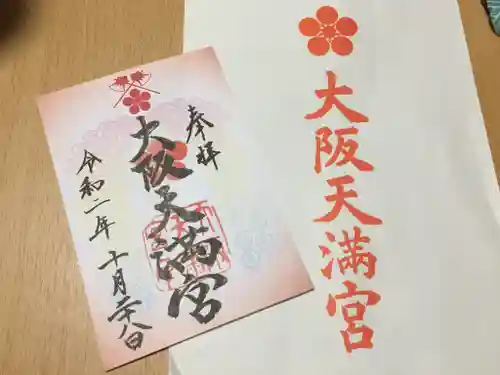 奉拝
大阪天満宮
令和二年十月二十八日
大阪天満宮